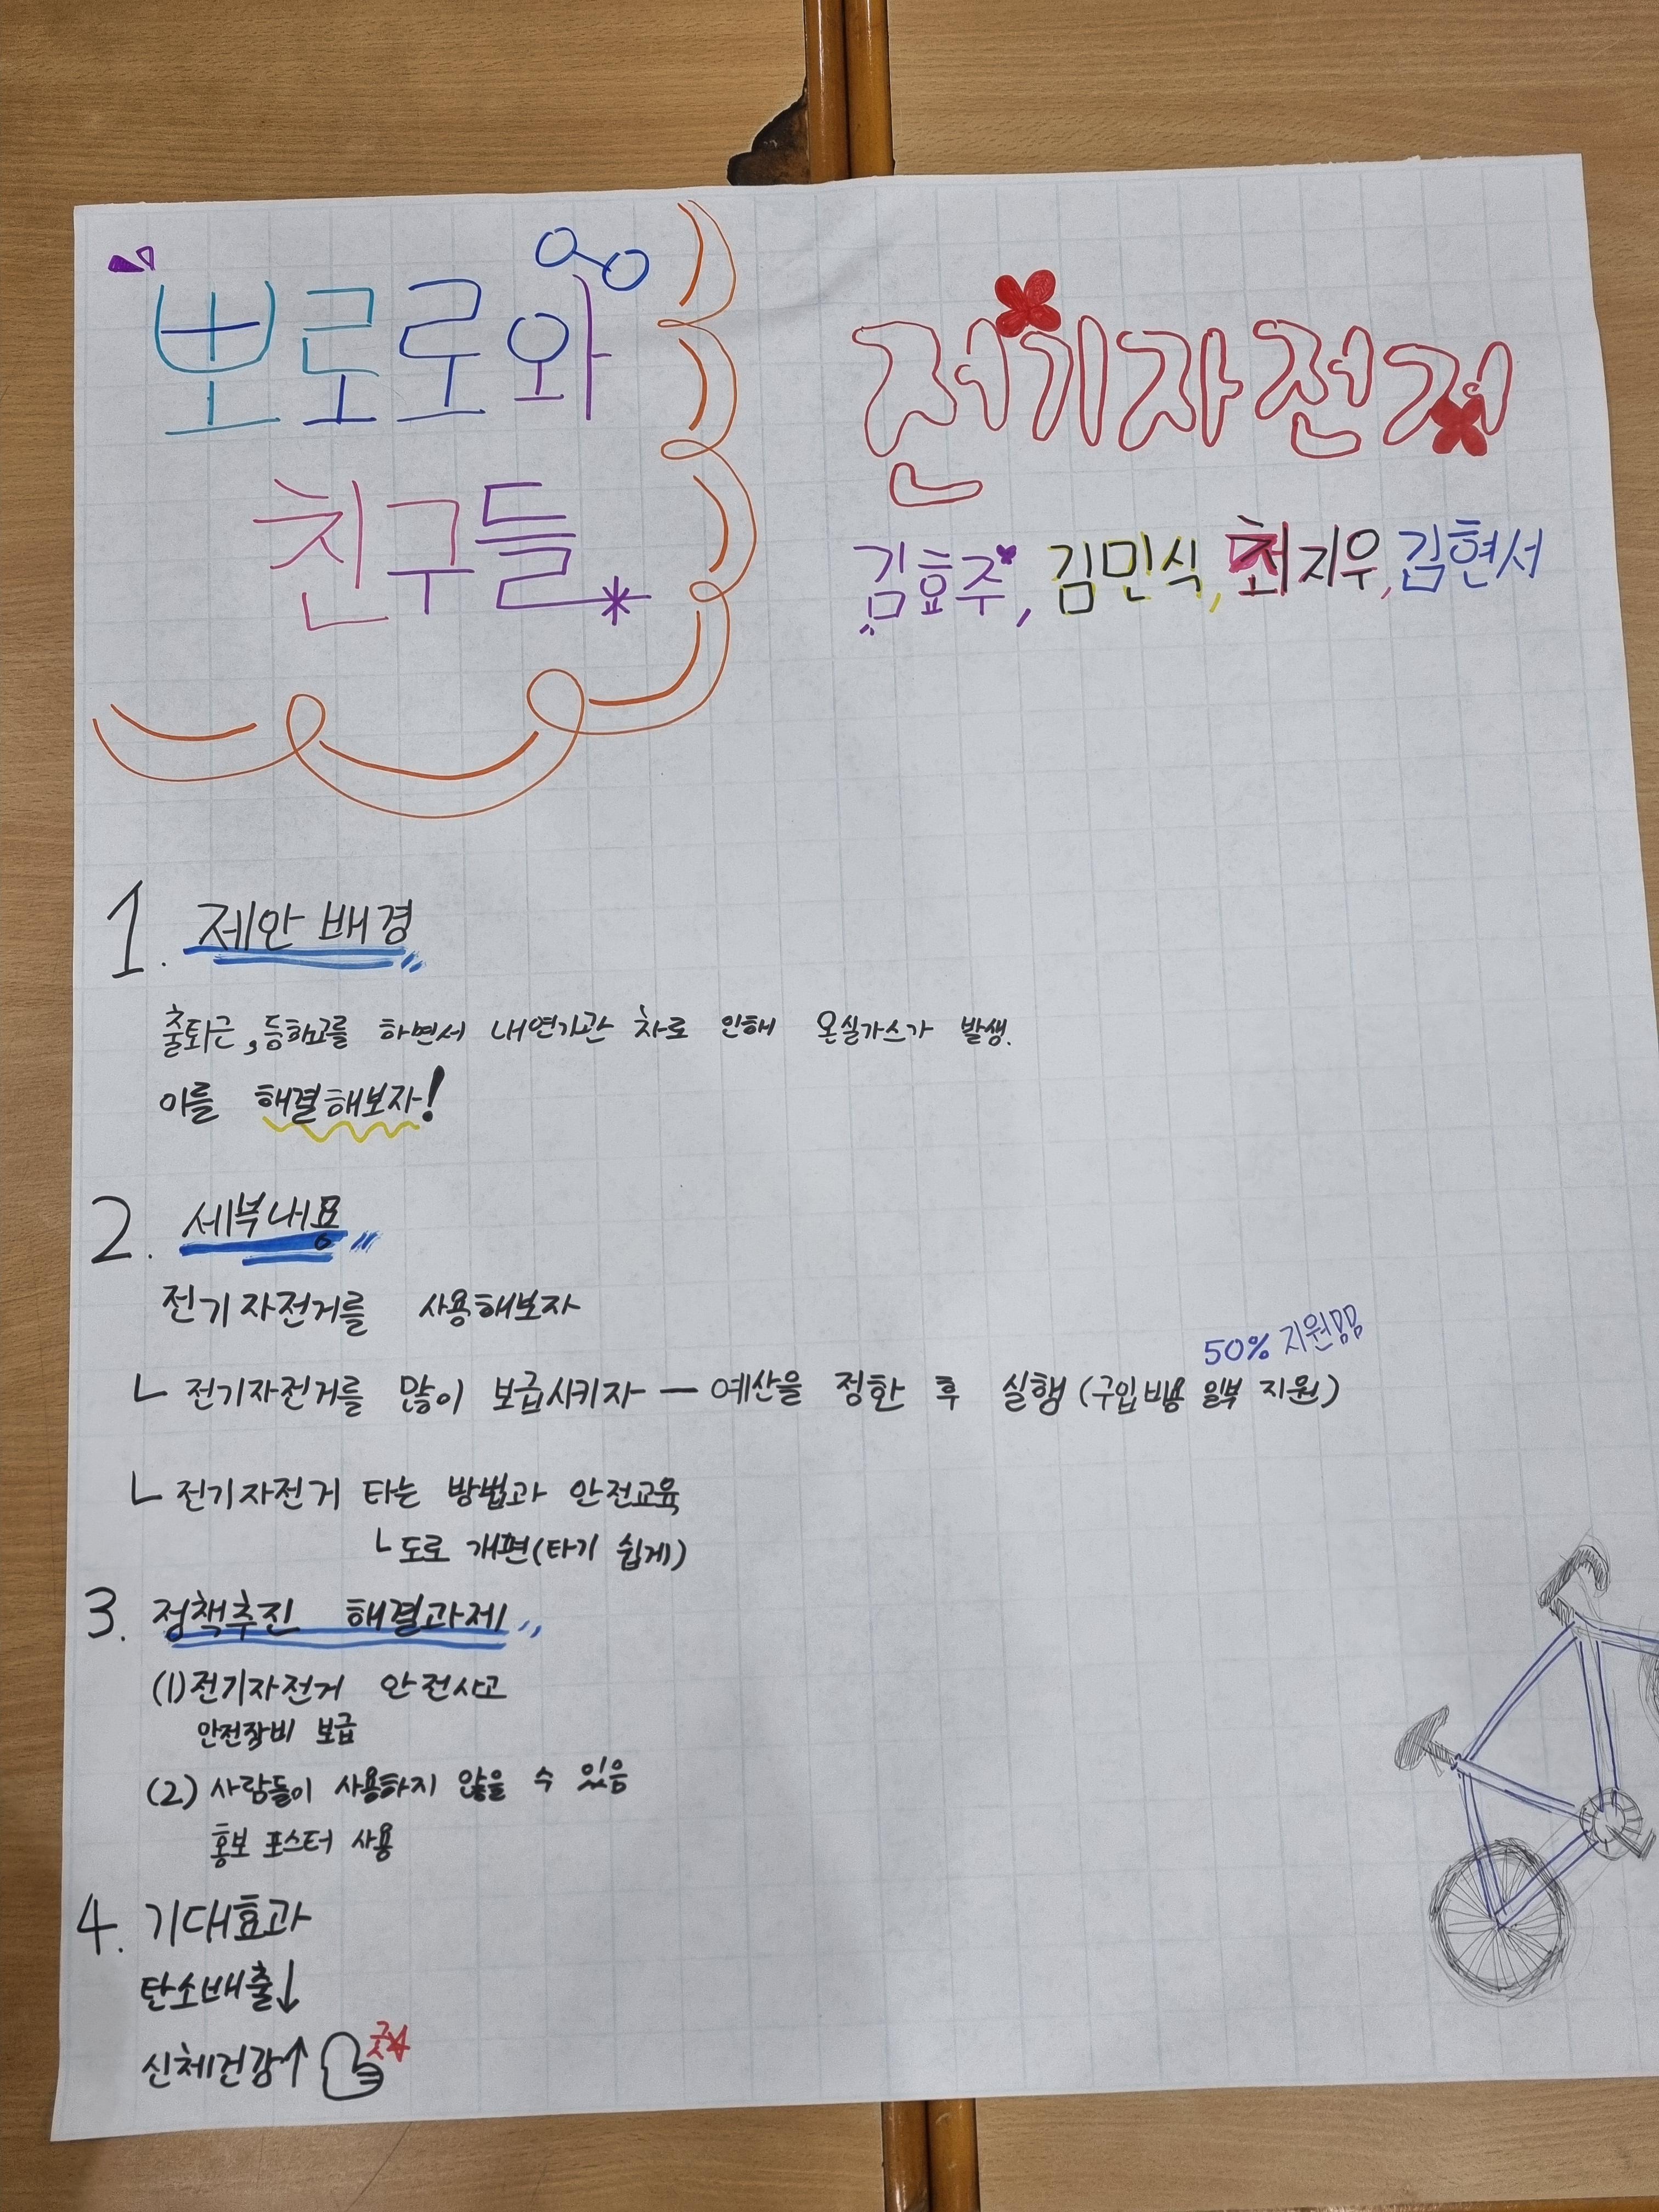 뽀로로와
친구들
전기자전거
김효주, 김민식, 최지우, 김현서
1. 제안 배경
출퇴근, 등하교를 하면서 내연기관 차로 인해 온실가스가 발생.
이를 해결해보자!
2. 세부내용
전기자전거를 사용해보자
50% 지원
ㄴ 전기자전거를 많이 보급시키자 — 예산을 정한 후 실행 (구입 비용 일부 지원)
ㄴ 전기자전거 타는 방법과 안전교육
ㄴ 도로 개편(타기 쉽게)
3. 정책추진 해결과제
(1) 전기자전거 안전사고
안전장비 보급
(2) 사람들이 사용하지 않을 수 있음
홍보 포스터 사용
4. 기대효과
탄소배출↓
신체건강↑